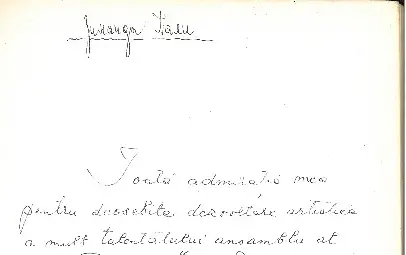 Toată admirația mea
pentru deosebita dezvoltare artistică
a mult talentatului ansamblu al